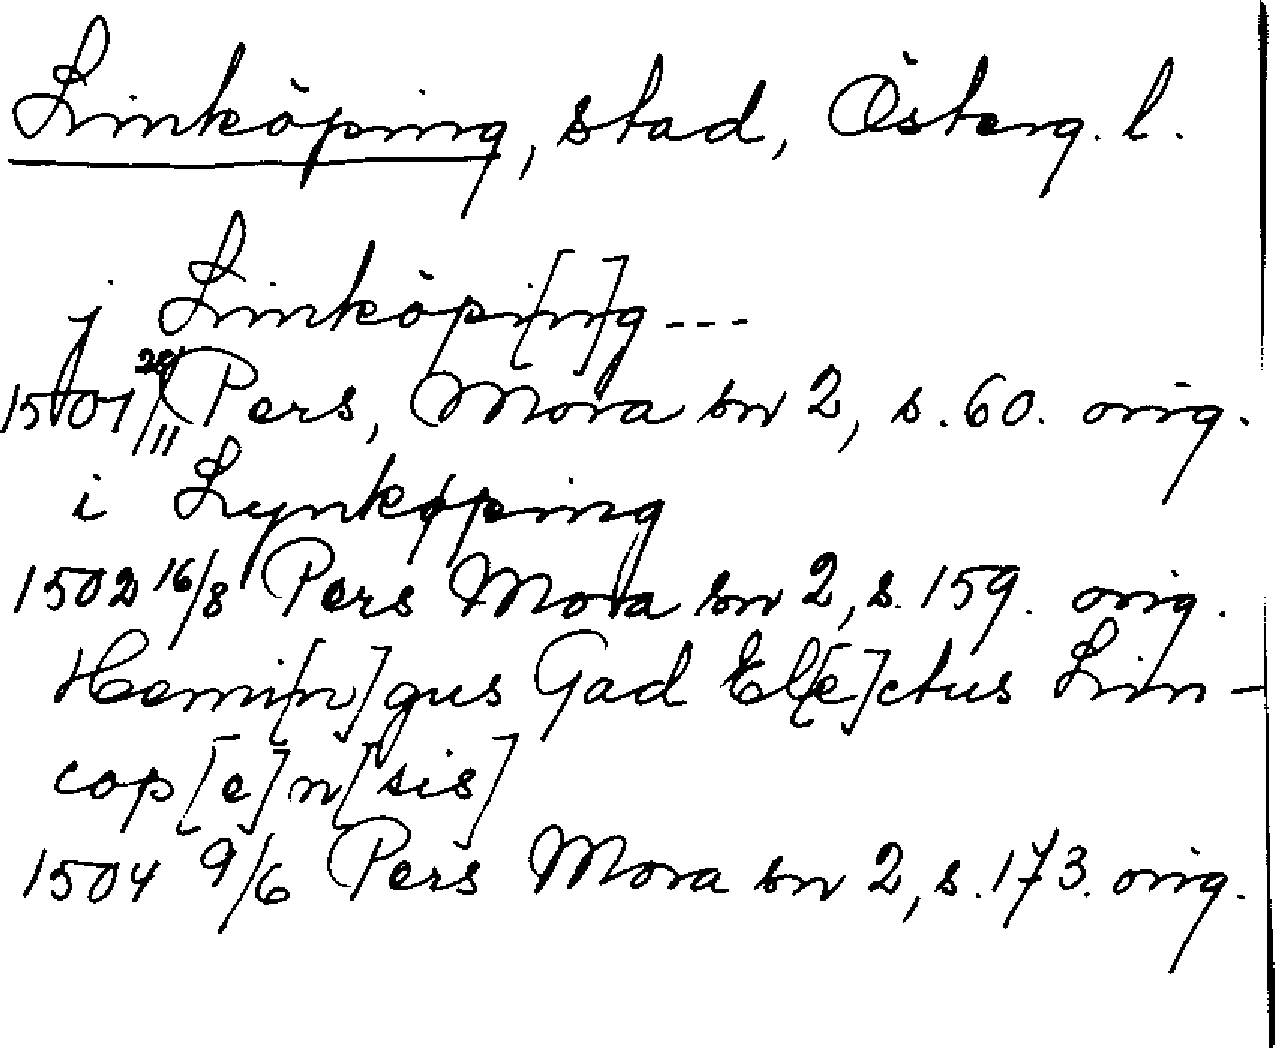 Linköping, stad, Österg. l.
j Linköpi[n]g ---
1501 29/11 Pers, Mora sn 2, s. 60. orig.
i Lynkøping
1502 16/8 Pers Mora sn 2, s. 159. orig.
Hemi[n]gus Gad El[e]ctus Lin-
cop[e]n[sis]
1504 9/6 Pers Mora sn 2, s. 173. orig.